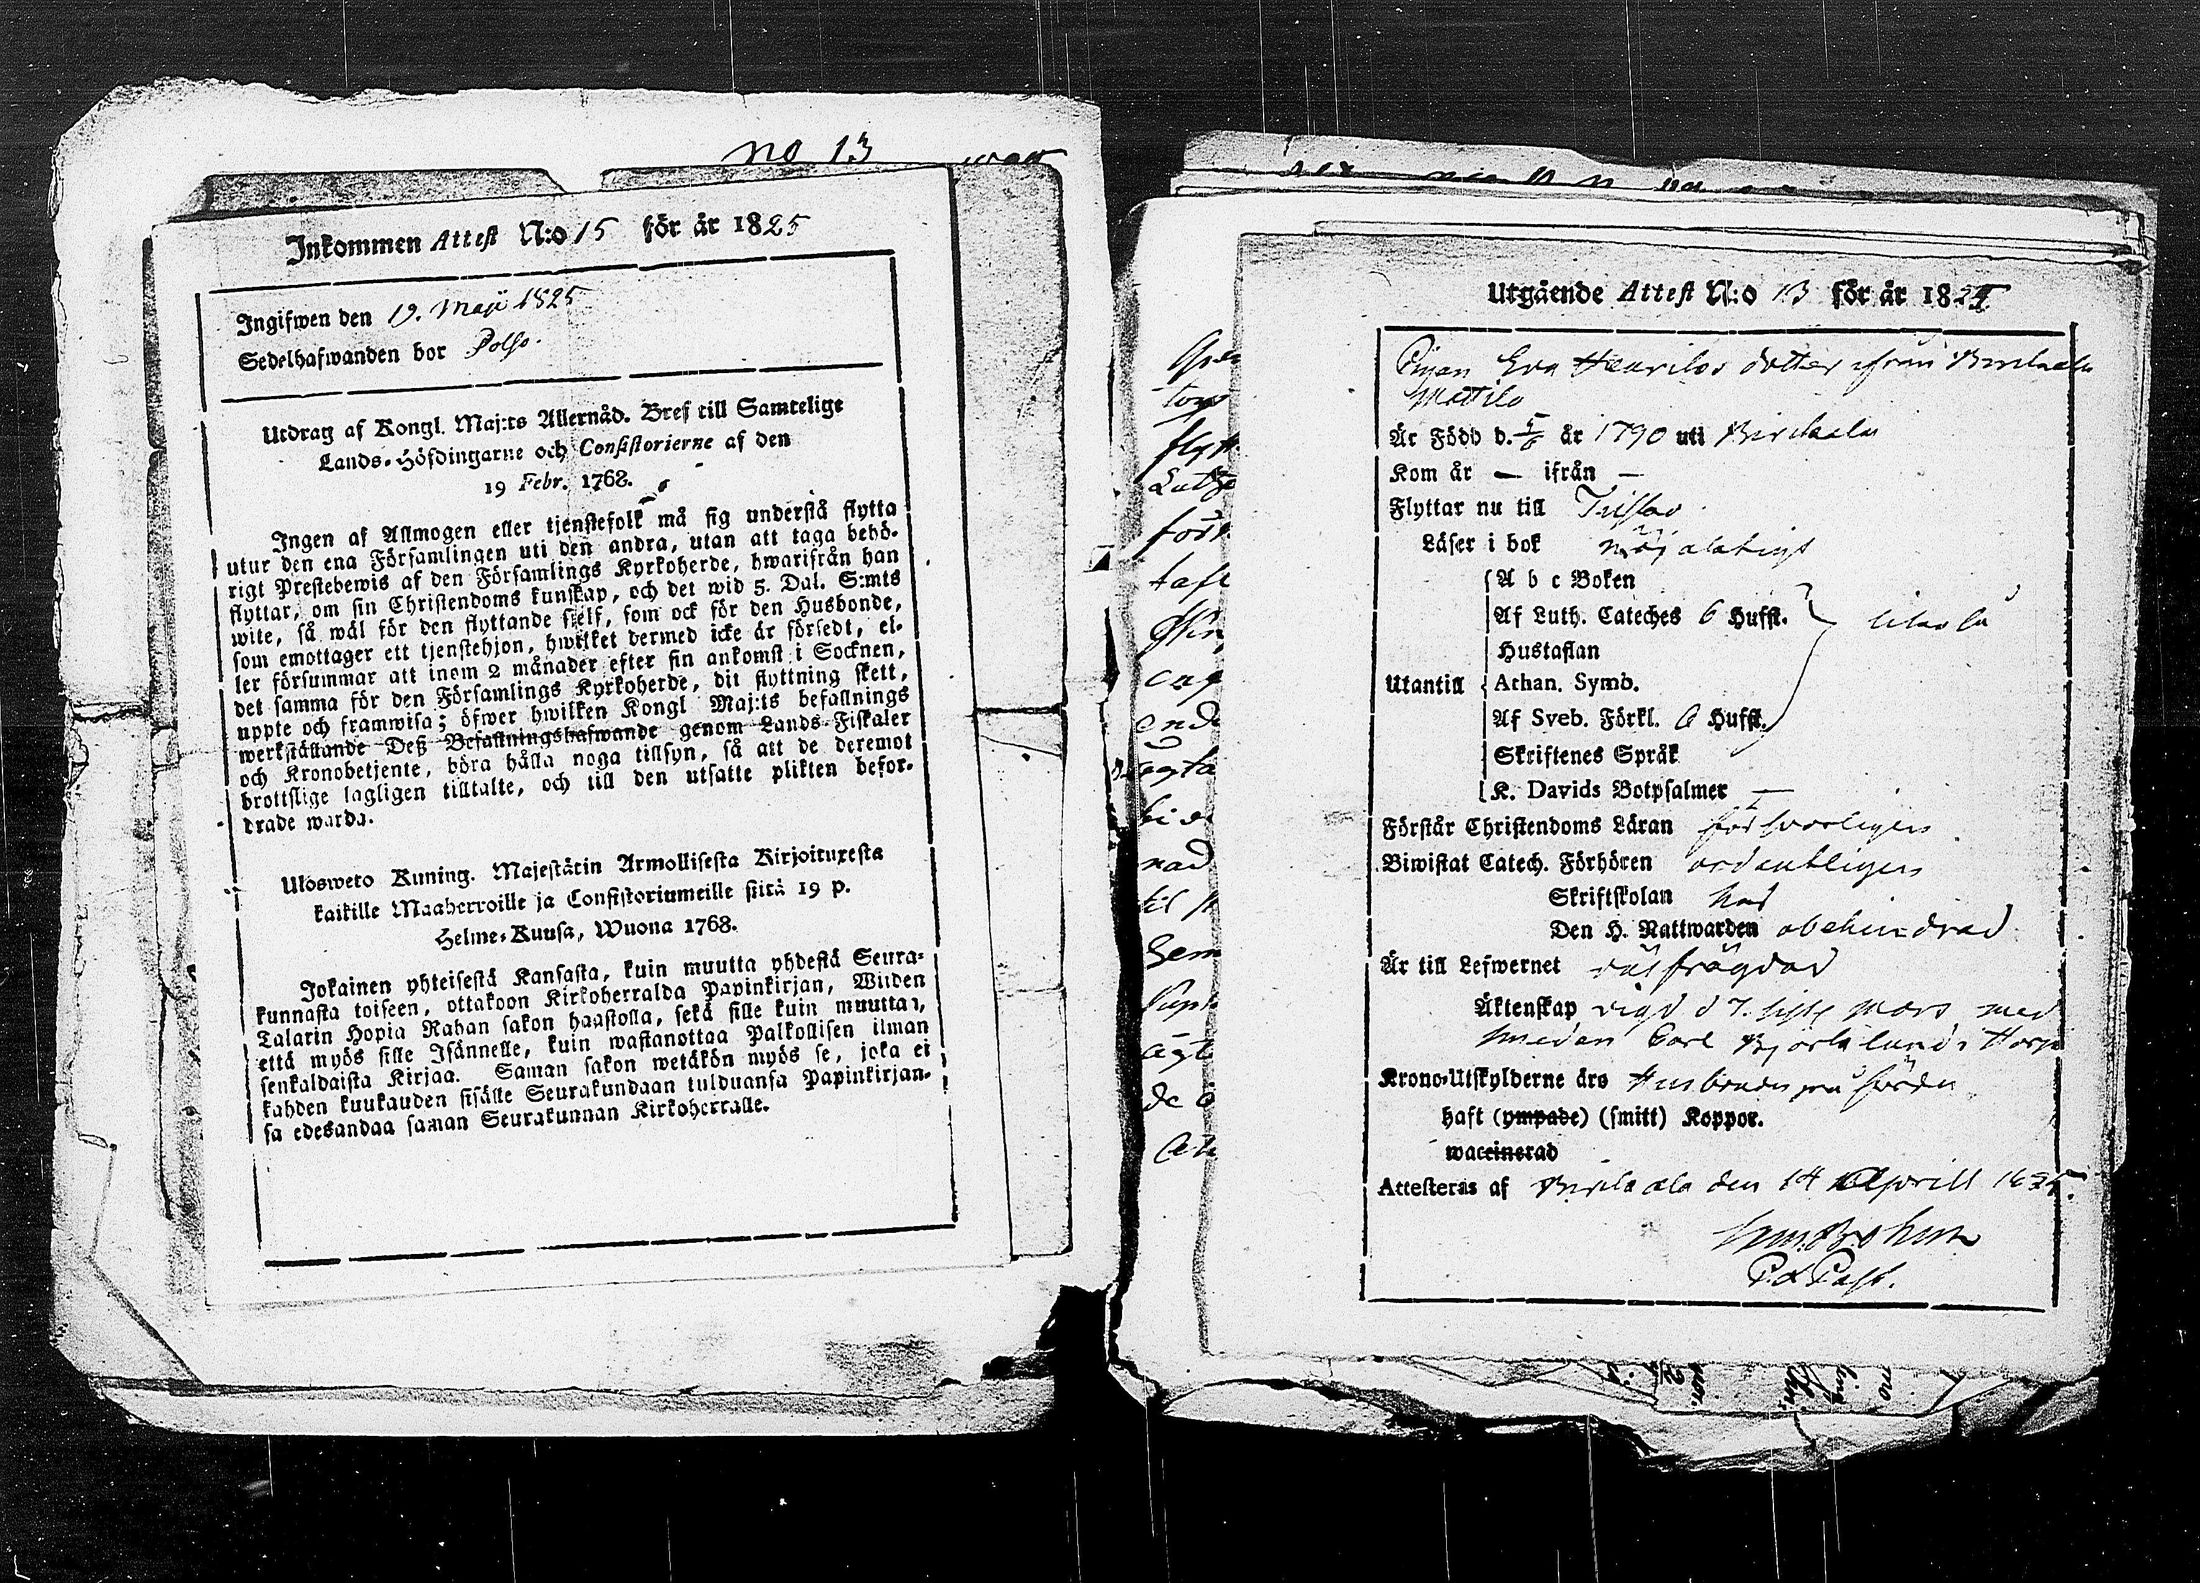 no 13
Inkommen Attest N:o 15 för år 1825
Ingifwen den 19. Maji 1825
Sedelhafwanden bor Polso.
Utdrag af Kongl. Maj:ts Allernåd. Bref till Samtelige
Lands-Höfdingarne och Consistorierne af den
19 Febr. 1768.
Ingen af Allmogen eller tjenstefolk må sig understå flytta
utur den ena Församlingen uti den andra, utan att taga behö-
rigt Prestebewis af den Församlings Kyrkoherde, hwarifrån han
flyttar, om sin Christendoms kunskap, och det wid 5. Dal. S:mts
wite, så wäl för den flyttande sjelf, som ock för den Husbonde,
som emottager ett tjenstehjon, hwilket dermed icke är försedt, el-
ler försummar att inom 2 månader efter sin ankomst i Socknen,
det samma för den Församlings Kyrkoherde, dit flyttning skett,
uppte och framwisa; öfwer hwilken Kongl Maj:ts befallnings
werkställande Deß Befallningshafwande genom Lands-Fiskaler
och Kronobetjente, böra hålla noga tillsyn, så att de deremot
brottslige lagligen tilltalte, och till den utsatte plikten befor-
drade warda.
Ulosweto Kuning. Majestätin Armollisesta Kirjoituxesta
kaikille Maaherroille ja Consistoriumeille siitä 19 p.
Helme-Kuusa, Wuona 1768.
Jokainen yhteisestä Kansasta, kuin muutta yhdestä Seura-
kunnasta toiseen, ottakoon Kirkoherralda Papinkirjan, Wiiden
Talarin Hopia Rahan sakon haastolla, sekä sille kuin muuttaa,
että myös sille Isännelle, kuin wastanottaa Palkollisen ilman
senkaldaista Kirjaa. Saman sakon wetäkön myös se, joka ei
kahden kuukauden sisälle Seurakundaan tulduansa Papinkirjan-
sa edesandaa saman Seurakunnan Kirkoherralle.
Utgående Attest N:o 13 för år 1825
Pigan Eva Henriks dotter ifrån Birckala
Mattila
Är Född d. 5/6 år 1790 uti Birckala
Kom år — ifrån —
Flyttar nu till
Läser i bok nöjaktigt
A b c Boken
Af Luth. Cateches 6 Hufst.
Hustaflan
Utantill Athan. Symb.
Af Sveb. Förkl. 6 Hufst.
Skriftenes Språk
K. Davids Botpsalmer —
Förstår Christendoms Läran försvarligen
Biwistat Catech. Förhören ordentligen
Skriftskolan har
Den H. Nattwarden obehindrad
Är till Lefwernet välfrägdad
Äktenskap vigd d 7. siste Mars med
Smeden Carl Björklund i
Krono-Utskylderne äro Husbonden påförda
haft (ympade) (smitt) Koppor.
waccinerad
Attesteras af Birckala den 14 Aprill 1825.
P. d Past.